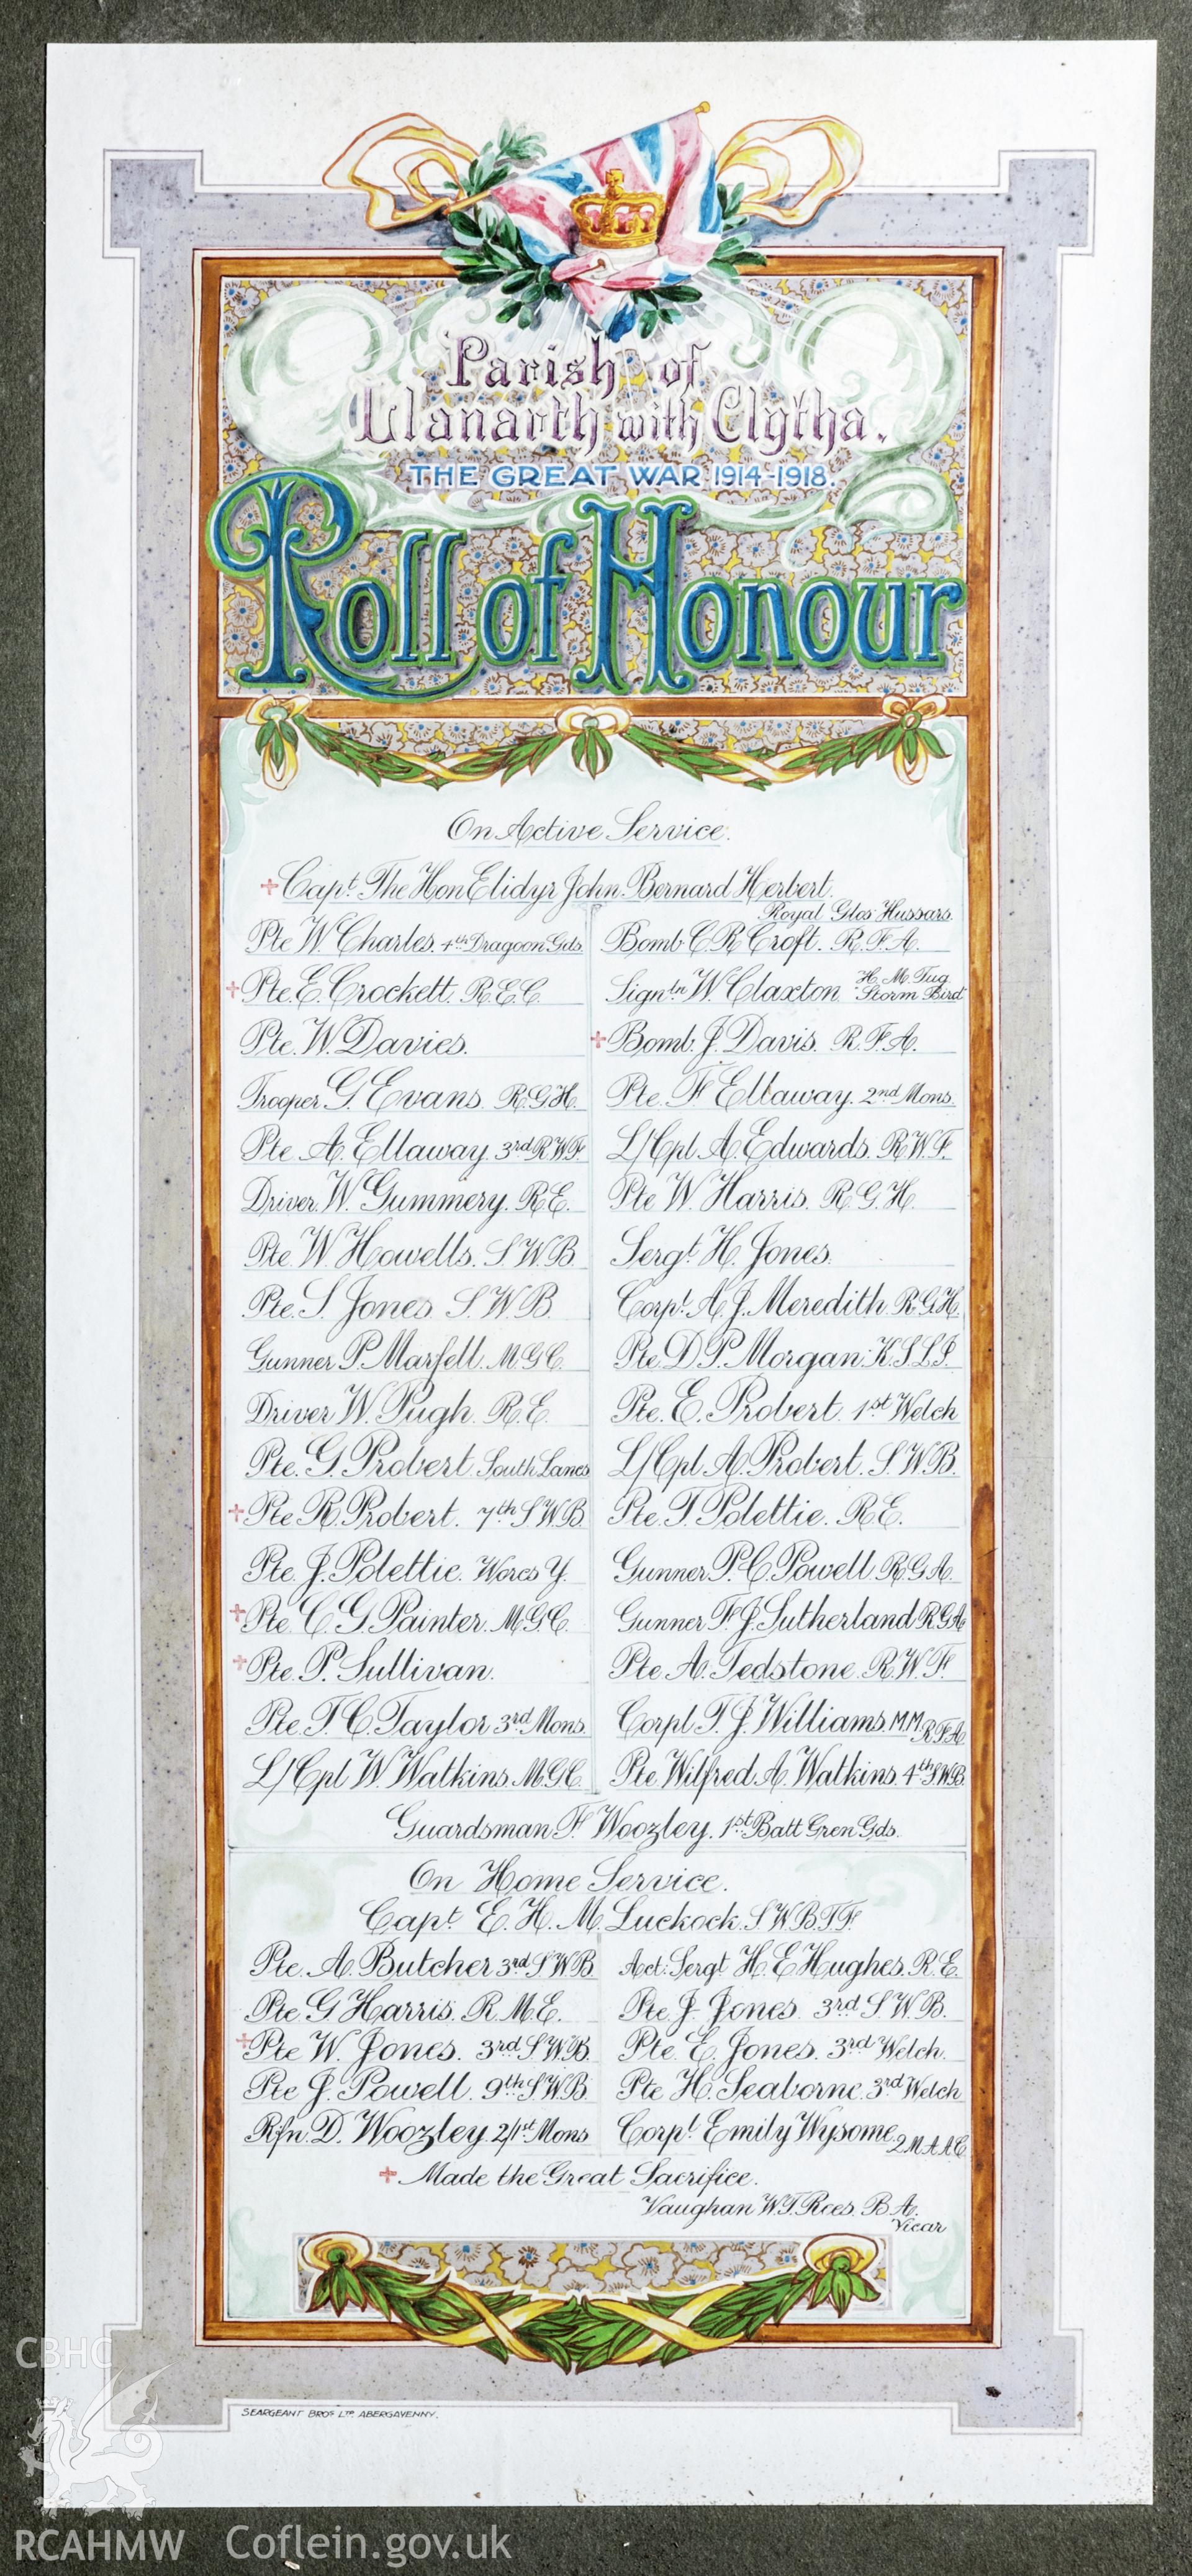 Parish of
Llanarth with Clytha.
THE GREAT WAR 1914-1918.
Roll of Honour
On Active Service.
+Capt. The Hon Elidyr John Bernard Herbert.
Royal Glos Hussars
Pte W. Charles. 4th Dragoon Gds.
Bomb C. R. Croft. R.F.A.
+Pte. E. Crockett. R.E.C.
Signln W. Claxton "H.M. Tug
Storm Bird"
Pte. W. Davies.
+Bomb. J. Davis. R.F.A.
Trooper G. Evans. R.G.H.
Pte. F Ellaway. 2nd Mons.
Pte A. Ellaway. 3rd R.W.F.
L/Cpl. A. Edwards. R.W.F.
Driver. W. Gummery. R.E.
Pte W. Harris. R.G.H.
Pte W Howells. S.W.B.
Sergt H. Jones.
Pte. S Jones S.W.B.
Corpl. A. J. Meredith R.G.H.
Gunner P. Marfell. M.G.C.
Pte. D. P. Morgan. K.S.L.I.
Driver W. Pugh. R.E.
Pte. E. Probert. 1st Welch
Pte. G. Probert South Lancs
L/Cpl A. Probert. S.W.B.
+Pte R. Probert. 7th S.W.B.
Pte. T. Polettie. R.E.
Pte. J. Polettie. Worcs Y.
Gunner P. C. Powell R.G.A.
+Pte. C. G. Painter. M.G.C.
Gunner F. J. Sutherland R.G.A.
+Pte. P. Sullivan.
Pte A. Tedstone. R.W.F.
Pte. T. C. Taylor 3rd Mons.
Corpl T. J. Williams. M.M. R.F.A.
L/Cpl W. Watkins. M.G.C.
Pte Wilfred A. Watkins. 4th S.W.B.
Guardsman F. Woozley. 1st Batt Gren Gds.
On Home Service.
Capt E. H. M. Luckock. S.W.B.T.F.
Pte. A. Butcher 3rd S.W.B.
Act: Sergt H. E Hughes. R.E.
Pte G Harris. R.M.E.
Pte J. Jones. 3rd S.W.B.
+Pte W. Jones. 3rd S.W.B.
Pte. E. Jones. 3rd Welch.
Pte J. Powell. 9th S.W.B.
Pte H. Seaborne. 3rd Welch
Rfn. D. Woozley. 2/1st Mons
Corpl. Emily Wysome. Q.M.A.A.C.
+ Made the Great Sacrifice.
Vaughan W. T. Rees. B.A.
Vicar
SEARGEANT BROS LTD ABERGAVENNY.
CBHC
RCAHMW Coflein.gov.uk